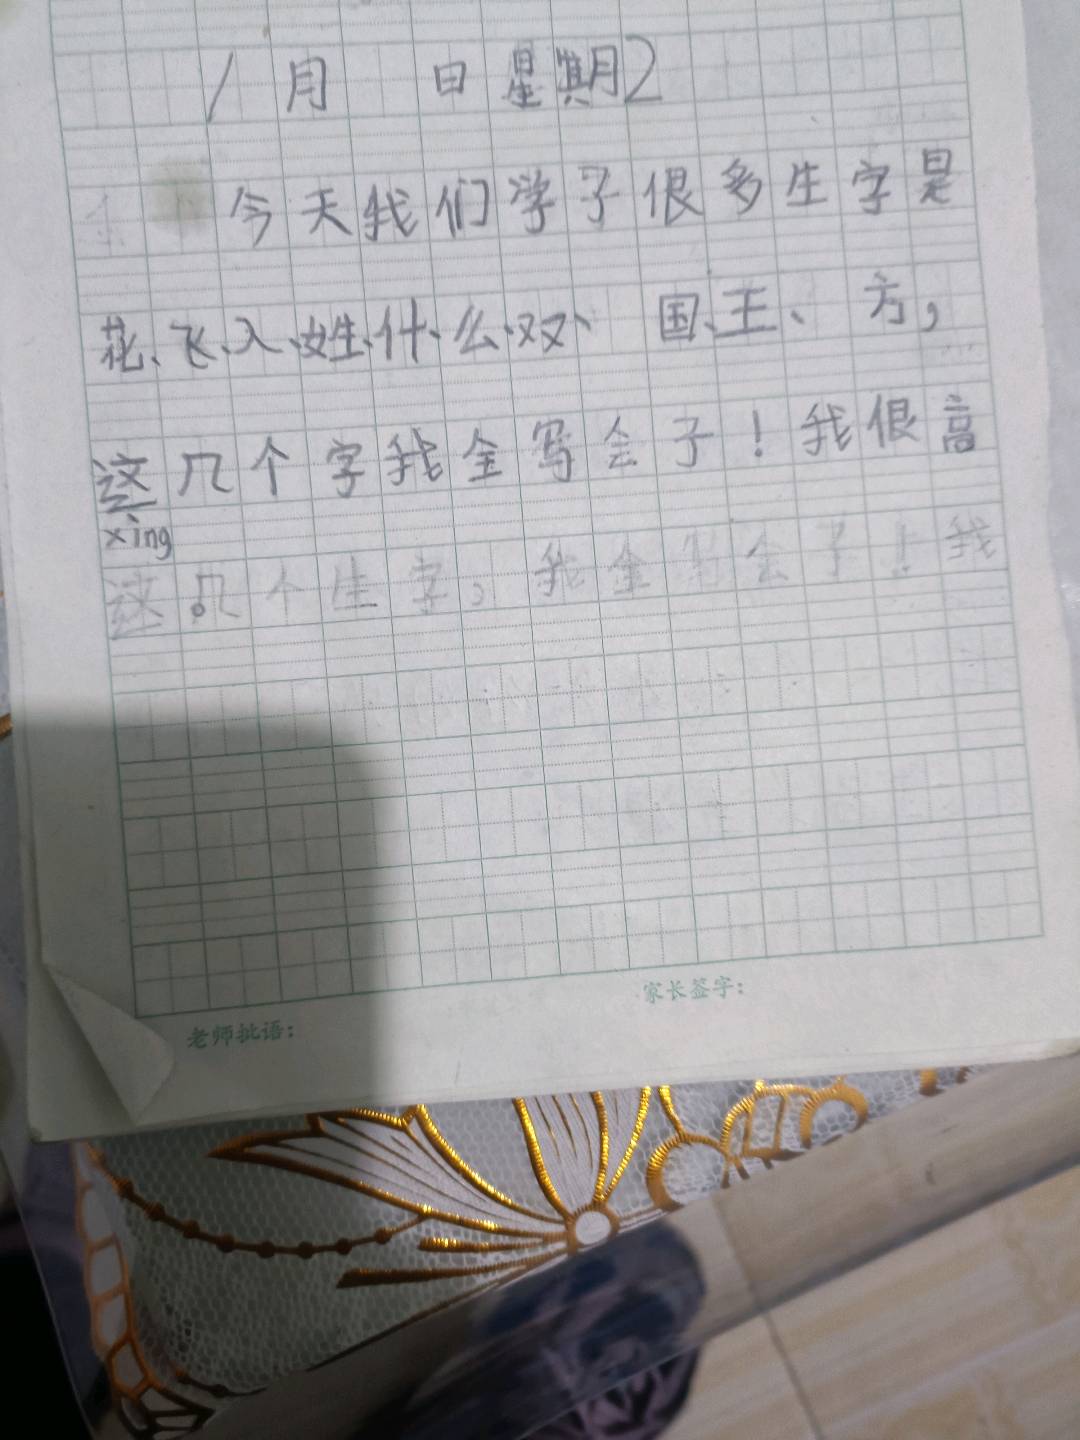 1月 日星期2
今天我们学子很多生字是
花、飞、入、姓、什、么、双、国、王、方，
这几个字我全写会子！我很高
xìng
这几个生字，我全写会子！我
家长签字：
老师批语：